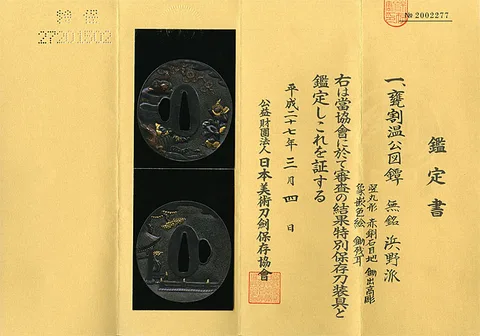 № 2002277
鑑定書
一、甕割温公図鐔 無銘 浜野派
竪丸形 赤銅石目地 鋤出高彫
象嵌色絵 鋤残耳
右は當協會に於て審査の結果特別保存刀装具と
鑑定しこれを証する
平成二十七年三月四日
公益財團法人 日本美術刀劍保存協會